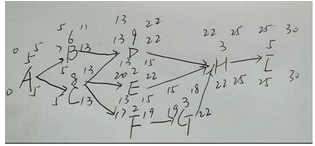 5 6 11 13 9 22 22 3 25 25 5 30
0 5 5 B 13 13 D 22 H I
A 7 8 13 20 2 22 22 25 25 30
0 5 5 C 13 13 E 15 15 18
5 13 2 15 3
17 F 19 19 G 22